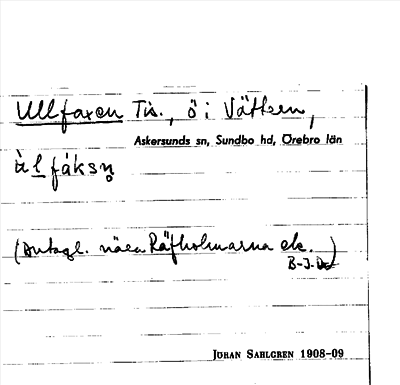 Ullfaxen Tis., ö i Vättern,
Askersunds sn, Sundbo hd, Örebro län
ùl fáksn̥
(Antagl. nära Räfholmarna ek.)
B-J.
JÖRAN SAHLGREN 1908-09